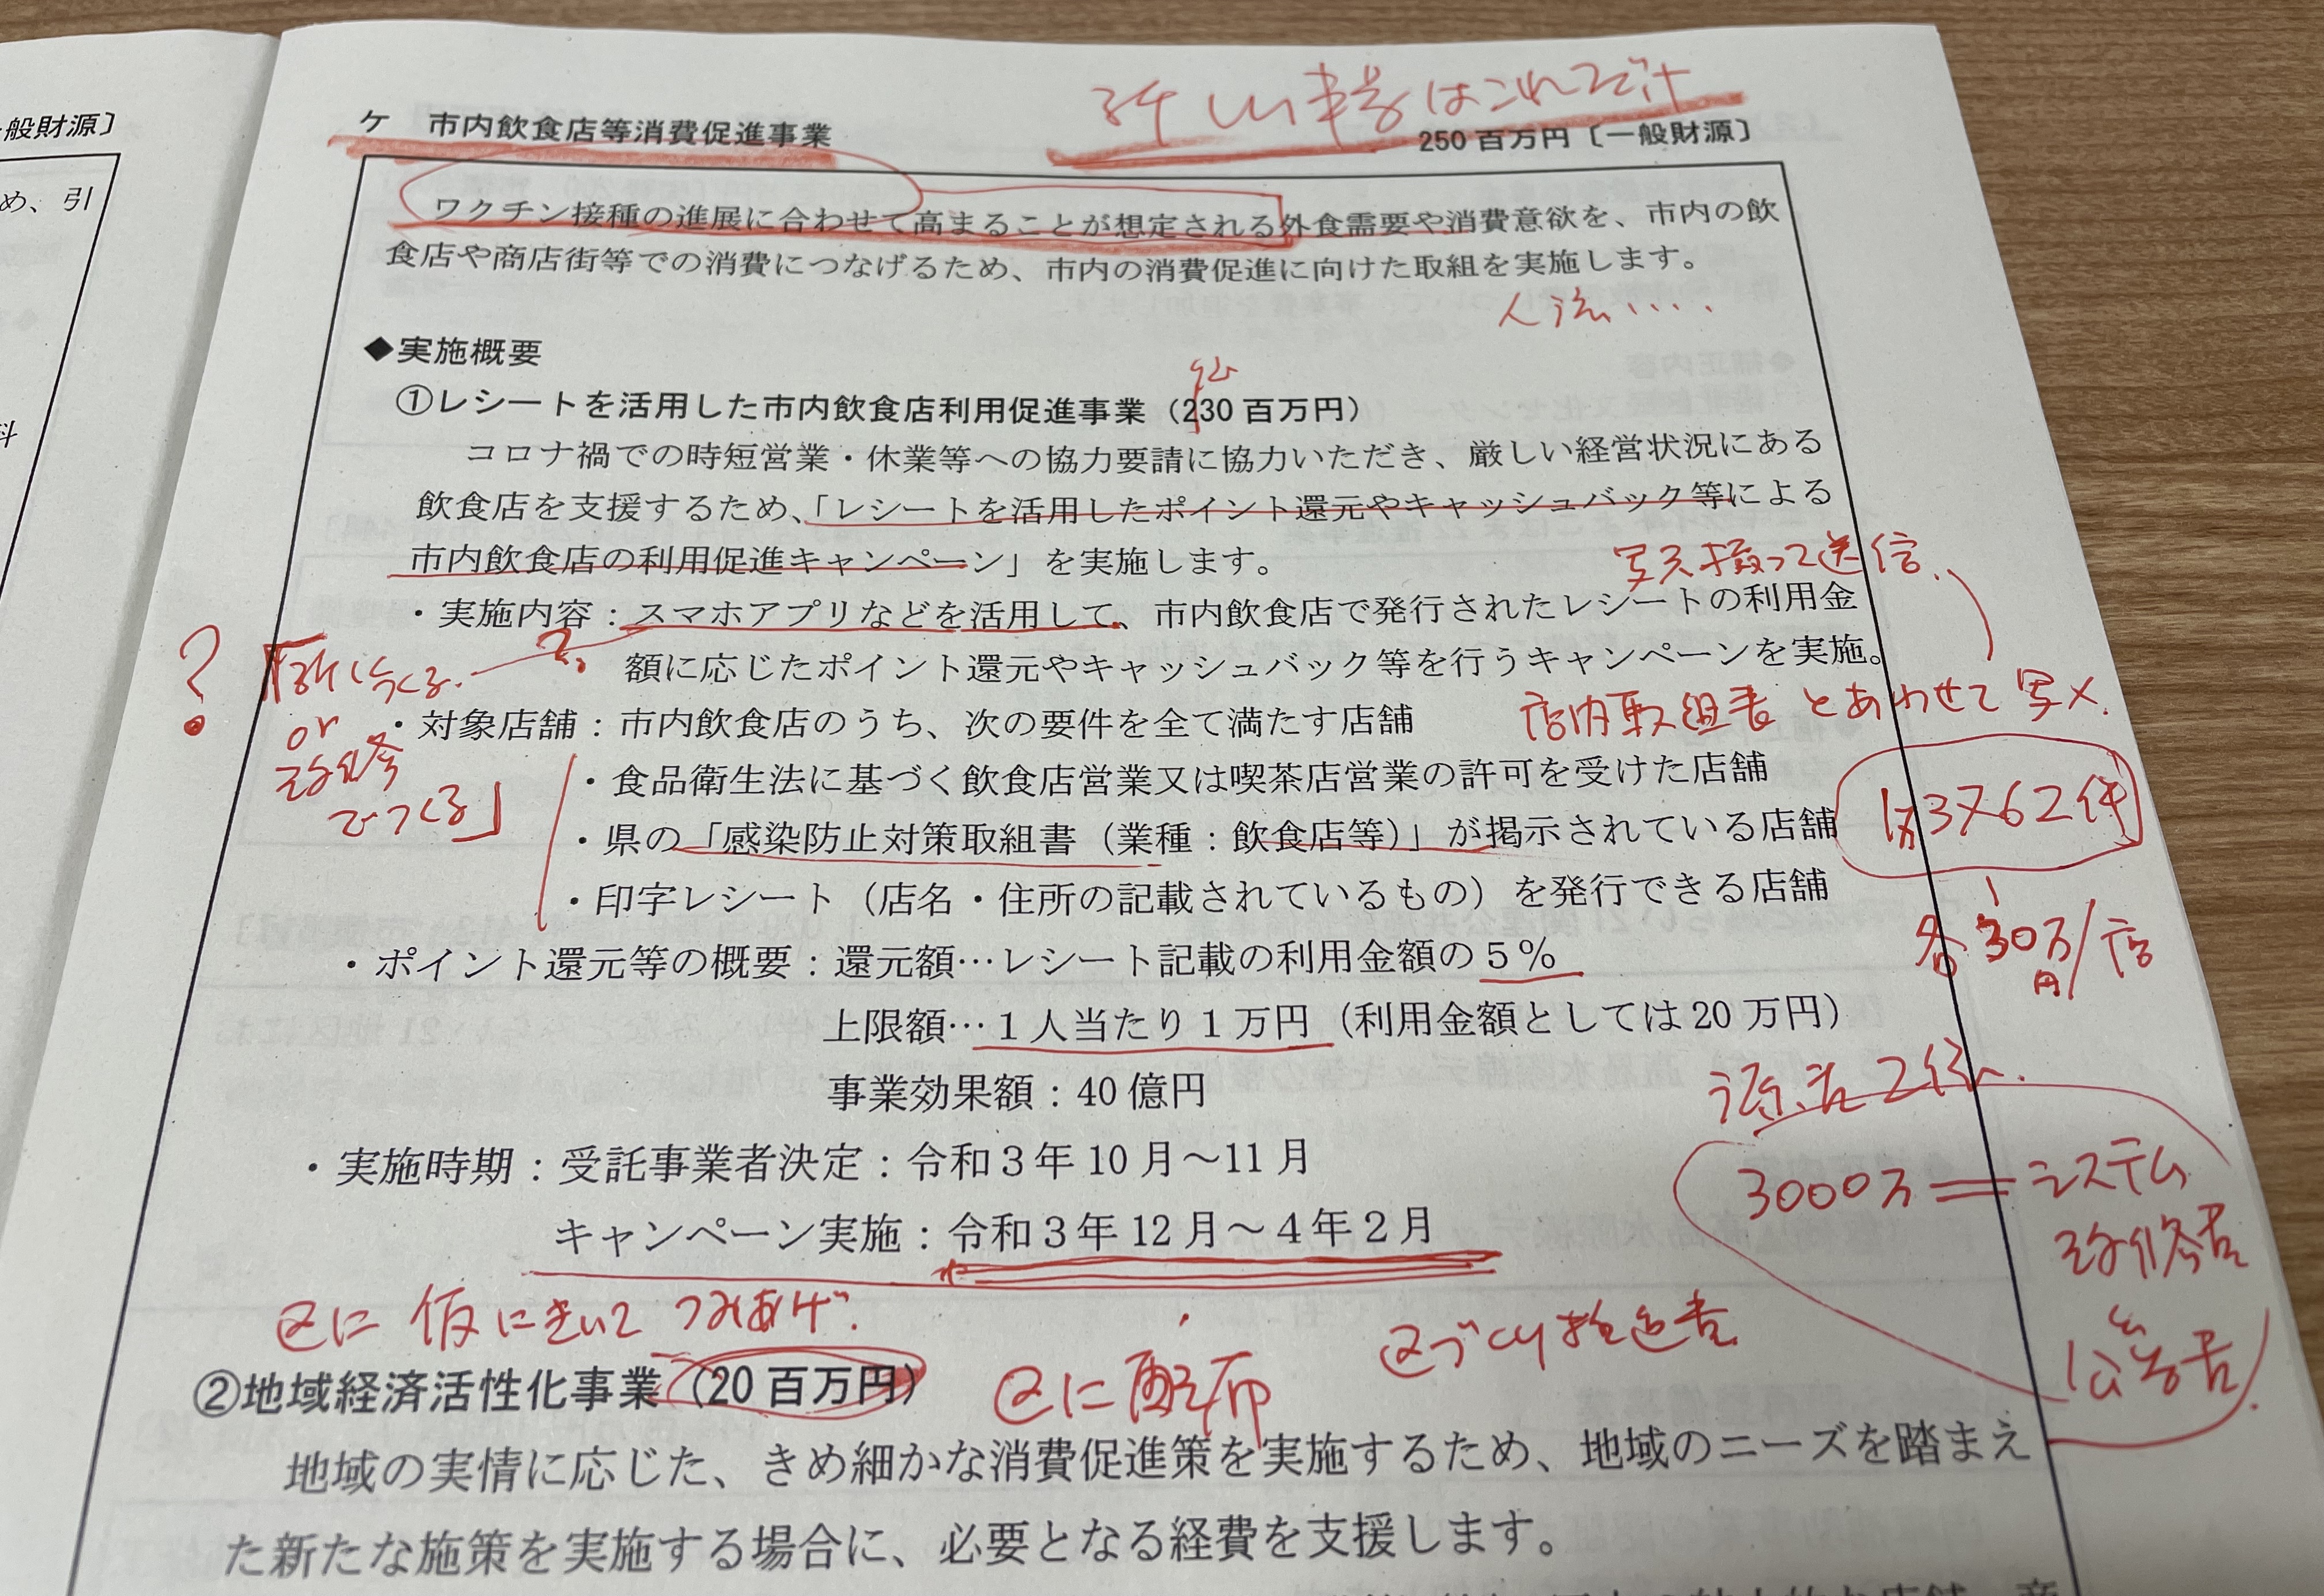 般財源〕
め、引
科
新しい事業はこれだけ
ケ 市内飲食店等消費促進事業
250 百万円〔一般財源〕
ワクチン接種の進展に合わせて高まることが想定される外食需要や消費意欲を、市内の飲
食店や商店街等での消費につなげるため、市内の消費促進に向けた取組を実施します。
人流....
◆実施概要
①レシートを活用した市内飲食店利用促進事業（230 百万円）
コロナ禍での時短営業・休業等への協力要請に協力いただき、厳しい経営状況にある
飲食店を支援するため、「レシートを活用したポイント還元やキャッシュバック等による
市内飲食店の利用促進キャンペーン」を実施します。
写真撮って送信
・実施内容：スマホアプリなどを活用して、市内飲食店で発行されたレシートの利用金
額に応じたポイント還元やキャッシュバック等を行うキャンペーンを実施。
? 「新につくる
or
改修
でつくる」
店内取組書とあわせて写メ.
・対象店舗：市内飲食店のうち、次の要件を全て満たす店舗
・食品衛生法に基づく飲食店営業又は喫茶店営業の許可を受けた店舗
・県の「感染防止対策取組書（業種：飲食店等）」が掲示されている店舗
1万3762件
・印字レシート（店名・住所の記載されているもの）を発行できる店舗
各30万円/店
・ポイント還元等の概要：還元額…レシート記載の利用金額の５％
上限額…１人当たり１万円（利用金額としては 20 万円）
事業効果額：40 億円
還元2億.
・実施時期：受託事業者決定：令和３年 10 月～11 月
3000万＝システム
改修費
公告費
キャンペーン実施：令和３年 12 月～４年２月
区に仮にきいてつみあげ.
区づくり推進費
②地域経済活性化事業（20 百万円）
区に配布
地域の実情に応じた、きめ細かな消費促進策を実施するため、地域のニーズを踏まえ
た新たな施策を実施する場合に、必要となる経費を支援します。